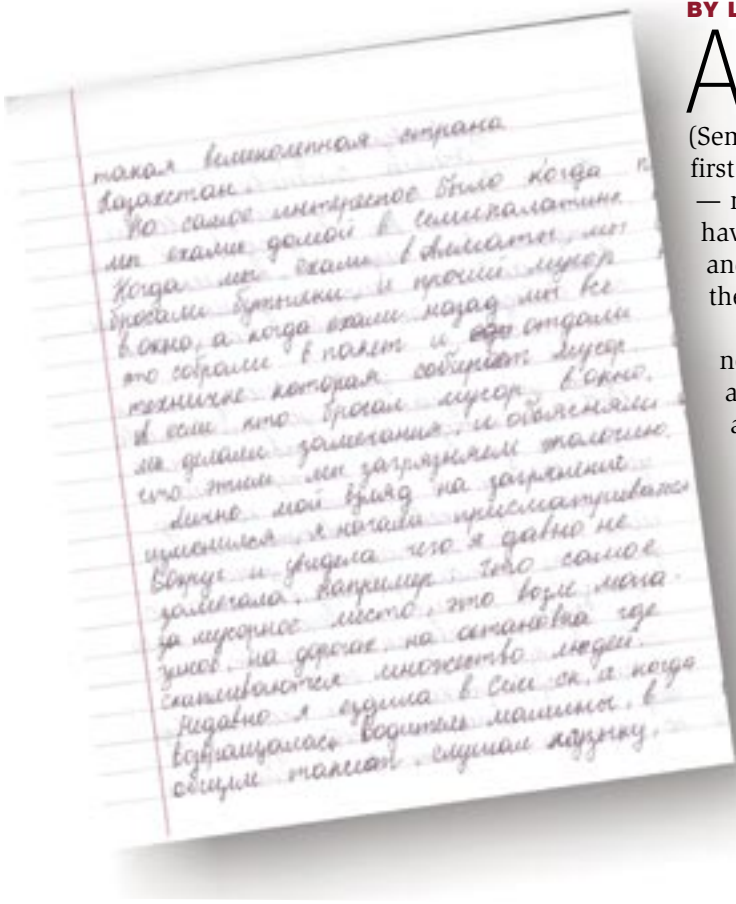 такая великолепная страна
Казахстан.
Но самое интересное было когда
мы ехали домой в Семипалатинк
Когда мы ехали в Алматы, мы
бросали бутылки, и прочий мусор
в окно, а когда ехали назад мы все
это собрали в пакет и отдали
техничке которая собирает мусор.
А если кто бросал мусор в окно,
мы делали замечания, и объясняли
что этим мы загрязняем экологию.
Лично мой взгляд на загрязнение
изменился, я начала присматриваться
вокруг и увидела чего я давно не
замечала, например, что самое
за мусорное место, это возле мага-
зинов, на дорогах, на остановка где
скапливаются множество людей.
Недавно я ездила в Сем ск, а когда
возвращалась водитель машины, в
общем таксист, слушал музыку,
BY L
A
(Sen
first
— r
hav
and
the
n
a
a